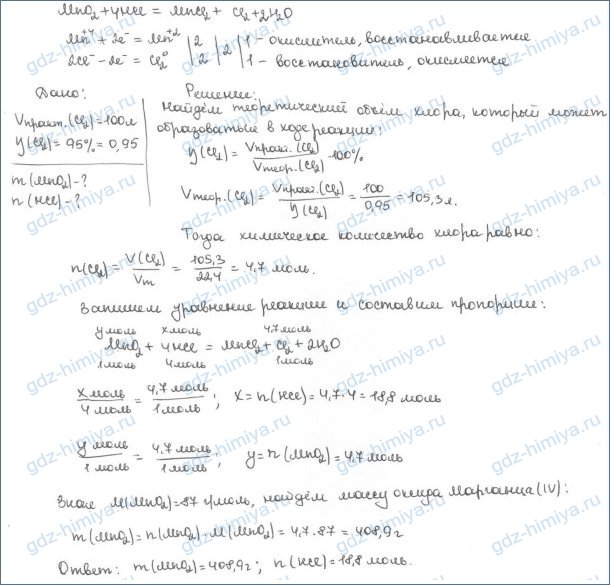 MnO₂ + 4HCl = MnCl₂ + Cl₂ + 2H₂O
Mn⁺⁴ + 2e⁻ = Mn⁺² | 2 | 2 | 1 - окислитель, восстанавливается
2Cl⁻ - 2e⁻ = Cl₂⁰ | 2 | | 1 - восстановитель, окисляется
Дано:
Vпракт.(Cl₂) = 100л
η(Cl₂) = 95% = 0,95
m(MnO₂) - ?
n(HCl) - ?
Решение:
Найдём теоретический объём хлора, который может
образоваться в ходе реакции:
η(Cl₂) = Vпракт.(Cl₂) / Vтеор.(Cl₂) · 100%
Vтеор.(Cl₂) = Vпракт.(Cl₂) / η(Cl₂) = 100 / 0,95 = 105,3 л.
Тогда химическое количество хлора равно:
n(Cl₂) = V(Cl₂) / Vm = 105,3 / 22,4 = 4,7 моль.
Запишем уравнение реакции и составим пропорцию:
y моль x моль 4,7 моль
MnO₂ + 4HCl = MnCl₂ + Cl₂ + 2H₂O
1 моль 4 моль 1 моль
x моль / 4 моль = 4,7 моль / 1 моль ; x = n(HCl) = 4,7 · 4 = 18,8 моль
y моль / 1 моль = 4,7 моль / 1 моль ; y = n(MnO₂) = 4,7 моль
Зная M(MnO₂) = 87 г/моль, найдём массу оксида марганца (IV):
m(MnO₂) = n(MnO₂) · M(MnO₂) = 4,7 · 87 = 408,9 г
Ответ: m(MnO₂) = 408,9 г ; n(HCl) = 18,8 моль.
gdz-himiya.ru